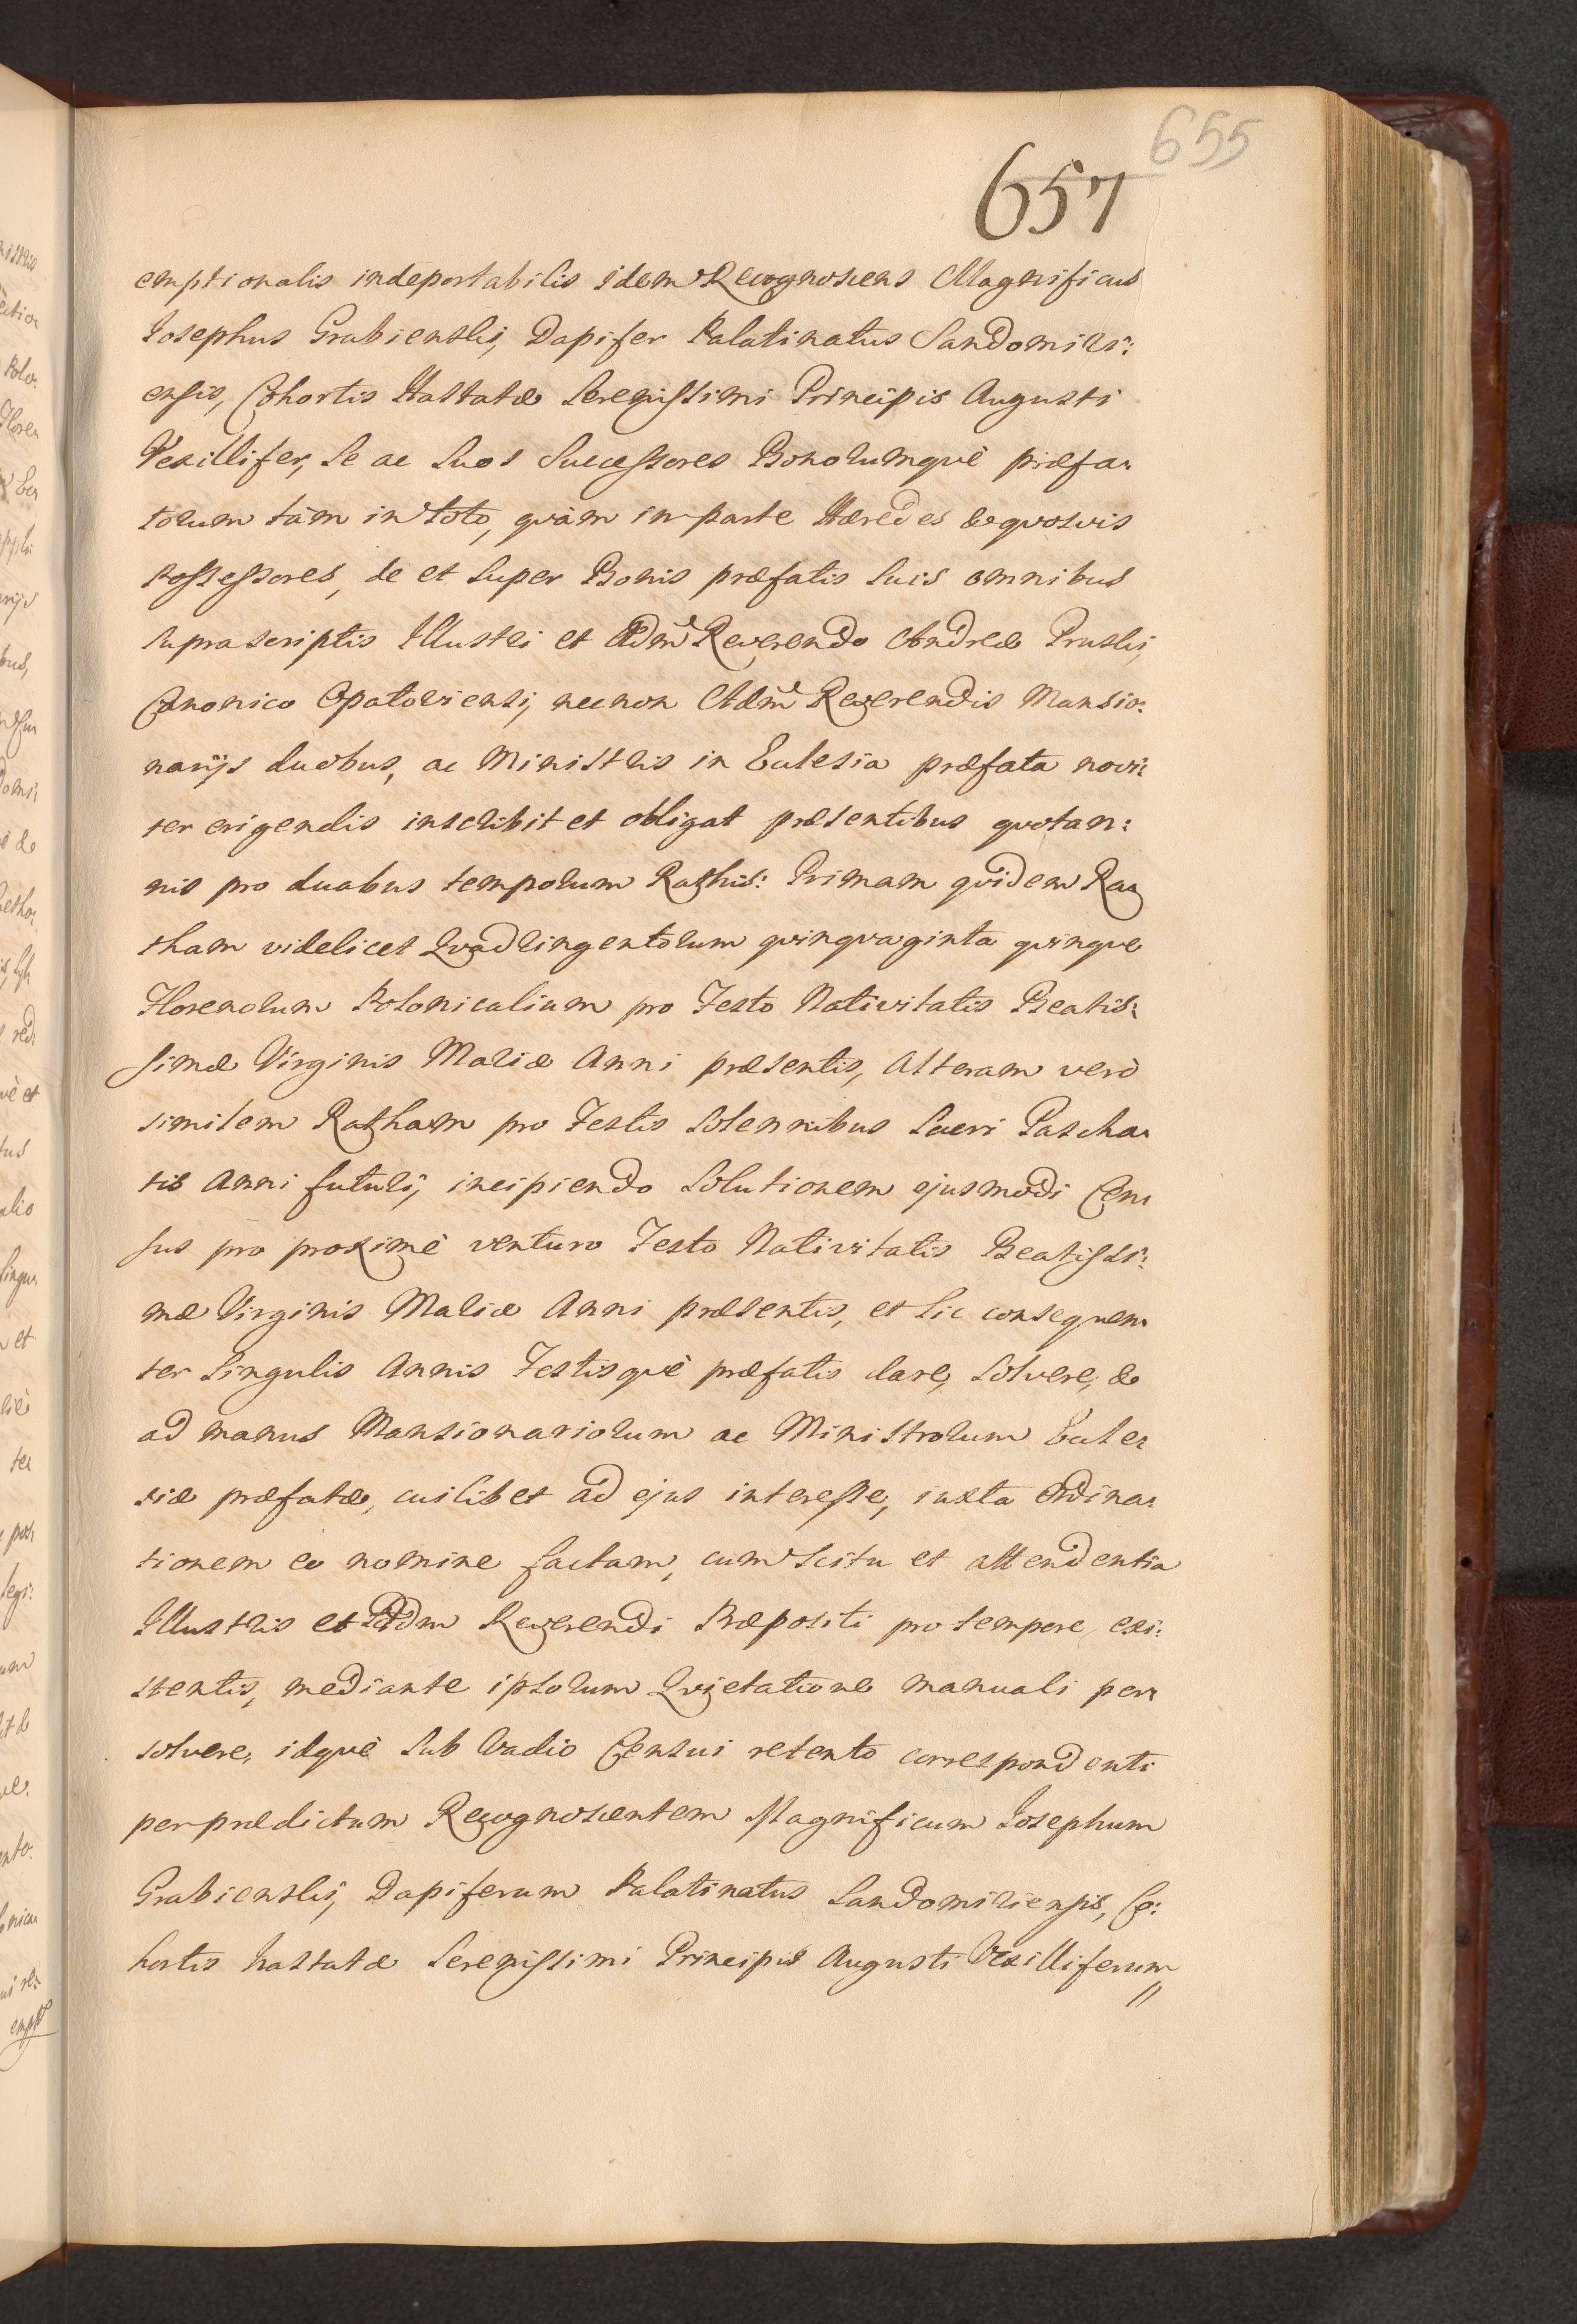 655
657
emptionalis indeportabilis idem Recognoscens Magnificus
Josephus Grabienski, Dapifer Palatinatus Sandomiri:
ensis, Cohortis Hastatæ Serenissimi Principis Augusti
Vexillifer, se ac suos Successores Bonorumquè præfa:
torum tàm in toto, quàm in parte Hæredes & quosvis
Possessores, de et super Bonis præfatis suis omnibus
suprascriptis Illustri et Adm̃ Reverendo Andreæ Pruski,
Canonico Opatoviensi, necnon Adm̃ Reverendis Mansio:
narijs duobus, ac Ministris in Eccłesia præfata novi:
ter erigendis inscribit et obligat præsentibus quotan:
nis pro duabus temporum Rathis: Primam quidem Ra:
tham videlicet Quadringentorum quinquaginta quinque
Florenorum Polonicalium pro Festo Nativitatis Beatis:
simæ Virginis Mariæ Anni præsentis, Alteram verò
similem Ratham pro Festis solennibus Sacri Pascha:
tis Anni futuri, incipiendo Solutionem ejusmodi Cen:
sus pro proximè venturo Festo Nativitatis Beatissi:
mæ Virginis Mariæ Anni præsentis, et sic consequen:
ter singulis Annis Festisquè præfatis dare, solvere, &
ad manus Mansionariorum ac Ministrorum Eccle:
siæ præfatæ, cuilibet ad ejus interesse, iuxta Ordina:
tionem eo nomine factam, cum scitu et attendentia
Illustris et Adm Reverendi Præpositi pro tempore exi:
stentis, mediante ipsorum Quietatione manuali per:
solvere, idquè sub Vadio Censui retento correspondenti
per prædictum Recognoscentem Magnificum Josephum
Grabienski, Dapiferum Palatinatus Sandomiriensis, Co:
hortis hastatæ Serenissimi Principis Augusti Vexilliferum